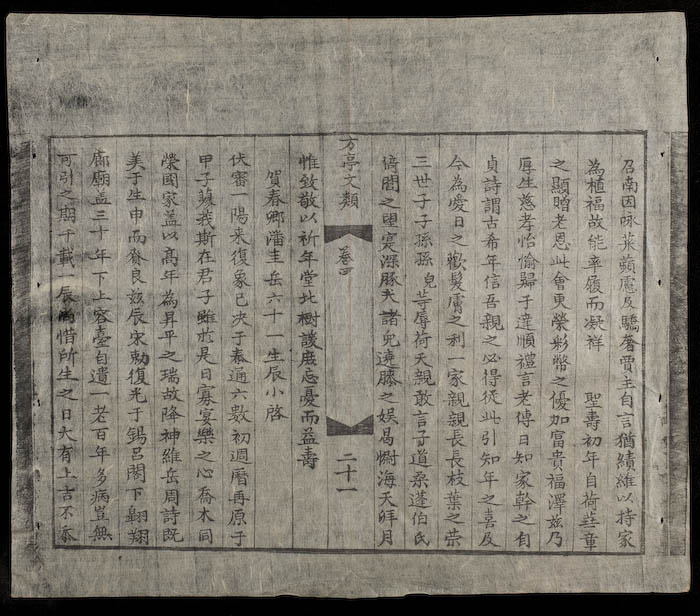 召南因咏菜蘋慝及驕奢賈主自言猶績維以持家
為植福故能率履而凝祥　聖壽初年自荷章
之顯贈老恩此會更榮彩幣之優加富貴福澤兹乃
厚生慈孝怡愉歸于達順禮言老傳曰知家幹之有
貞詩謂古希年信吾親之必得従此引知年之喜及
今為愛日之歡髮膚之利一家親親長長枝葉之荣
三世子子孫孫兒等辱荷天親敢言子道蓬伯氏
倚閭之望寔深豚犬諸兒遶膝之娱曷慰海天拜月
方亭文類　卷四　二十一
惟致敬以祈年堂北樹諼庶忘憂而益壽
賀春鄉潘圭岳六十一生辰小啓
伏審一陽来復象已決于泰通六數初週曆再原于
甲子莪斯在君子雖於是日寡宴樂之心喬木同
榮國家盖以高年為昇平之瑞故降神維岳周詩既
美于生申而賚良兹辰宋勑復光于錫呂閣下翱翔
廊廟盖三十年下上容臺自遺一老百年多病豈無
可引之期千載一辰惜所生之日大有上吉不忝